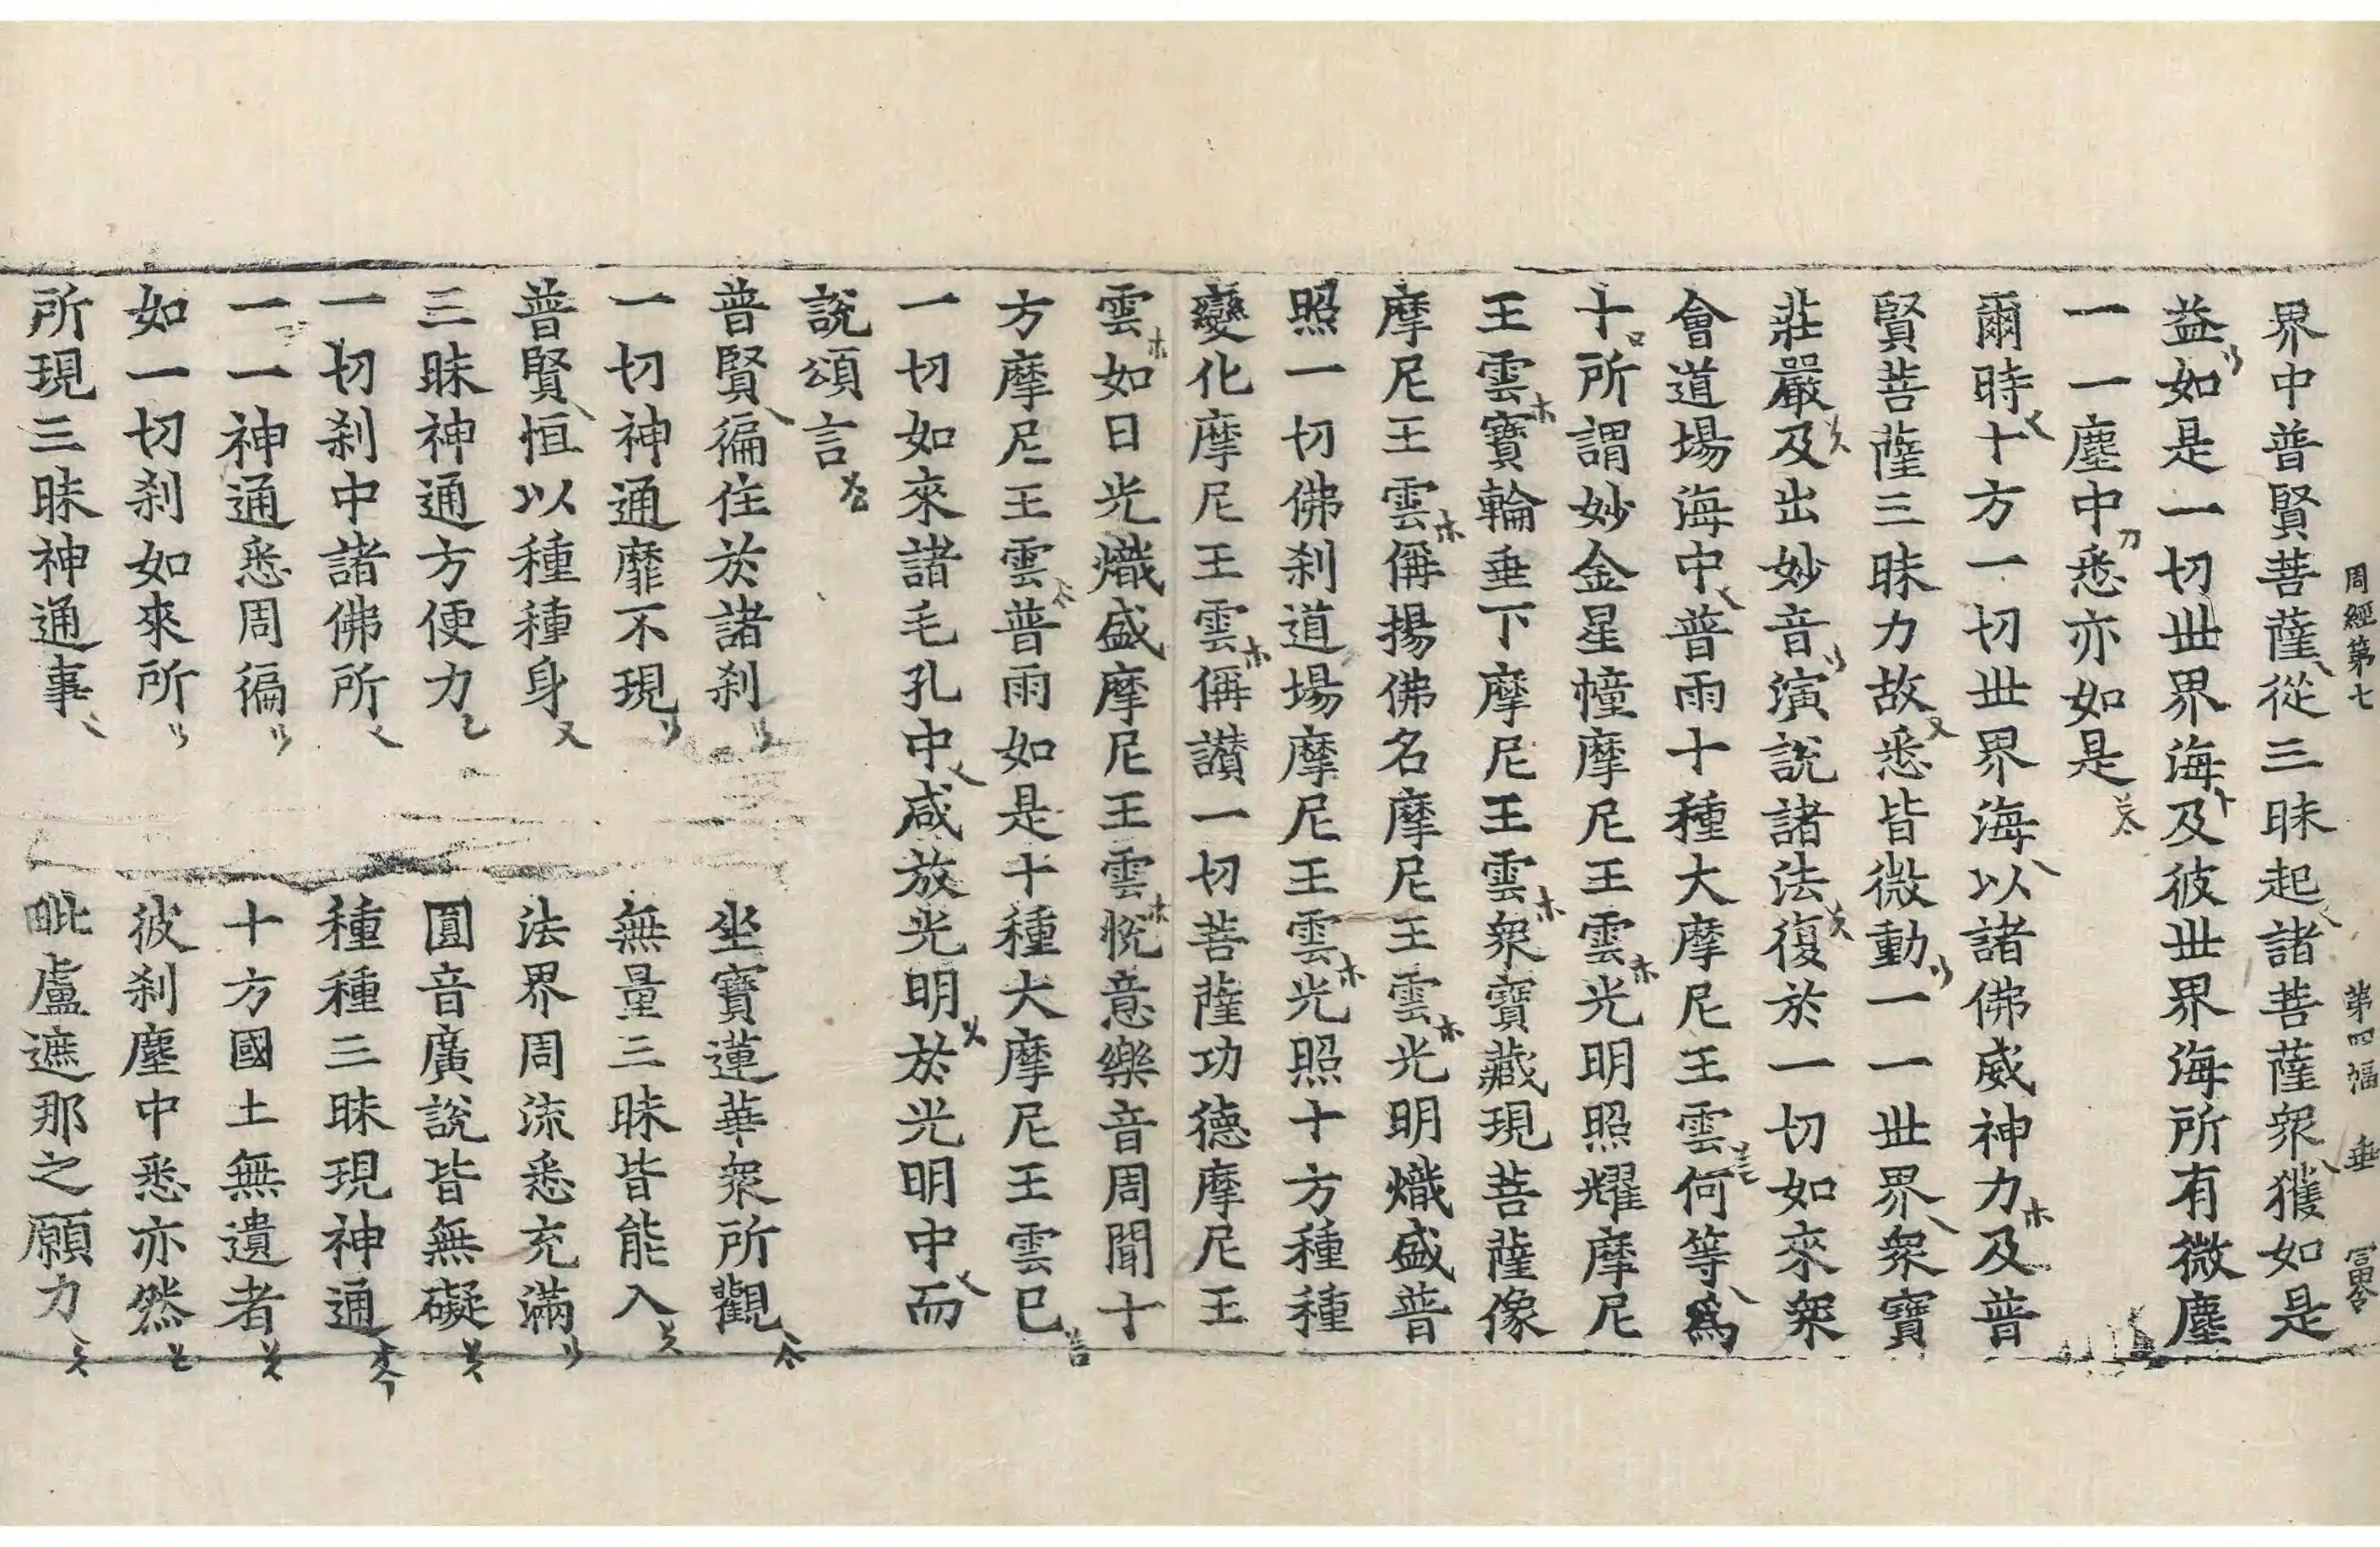 周經第七 第四幅 垂 冨谷
界中普賢菩薩從三昧起諸菩薩衆獲如是
益如是一切世界海及彼世界海所有微塵
一一塵中悉亦如是
爾時十方一切世界海以諸佛威神力及普
賢菩薩三昧力故悉皆微動一一世界衆寶
莊嚴及出妙音演說諸法復於一切如來衆
會道場海中普雨十種大摩尼王雲何等爲
十所謂妙金星幢摩尼王雲光明照耀摩尼
王雲寶輪垂下摩尼王雲衆寶藏現菩薩像
摩尼王雲偁揚佛名摩尼王雲光明熾盛普
照一切佛刹道場摩尼王雲光照十方種種
變化摩尼王雲偁讃一切菩薩功德摩尼王
雲如日光熾盛摩尼王雲悅意樂音周聞十
方摩尼王雲普雨如是十種大摩尼王雲已
一切如來諸毛孔中咸放光明於光明中而
說頌言
普賢徧住於諸刹 坐寶蓮華衆所觀
一切神通靡不現 無量三昧皆能入
普賢恒以種種身 法界周流悉充滿
三昧神通方便力 圓音廣說皆無礙
一切刹中諸佛所 種種三昧現神通
一一神通悉周徧 十方國土無遺者
如一切刹如來所 彼刹塵中悉亦然
所現三昧神通事 毗盧遮那之願力